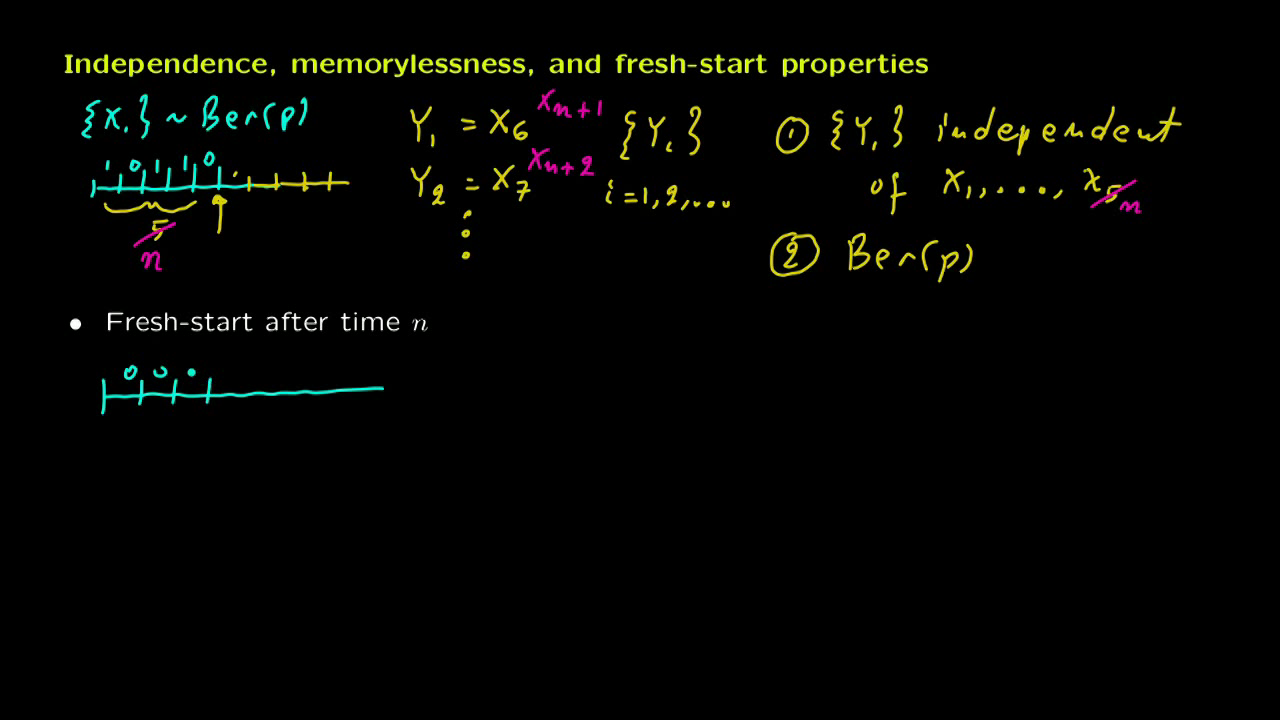 Independence, memorylessness, and fresh-start properties
{Xᵢ} ~ Ber(p)
1 0 1 1 0
5
n
Y₁ = X₆ Xₙ₊₁
Y₂ = X₇ Xₙ₊₂
{Yᵢ}
i = 1, 2, ...
① {Yᵢ} independent
of X₁, ..., X₅ n
② Ber(p)
• Fresh-start after time n
0 0